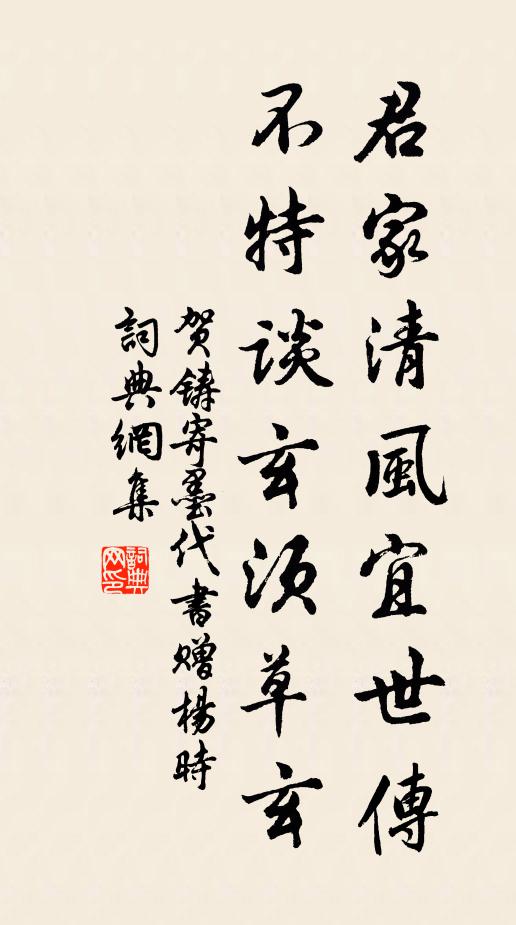 君家清風宜世傳
不特談玄須草玄
賀鑄寄墨代書贈楊時
詞典網集
詞典網印